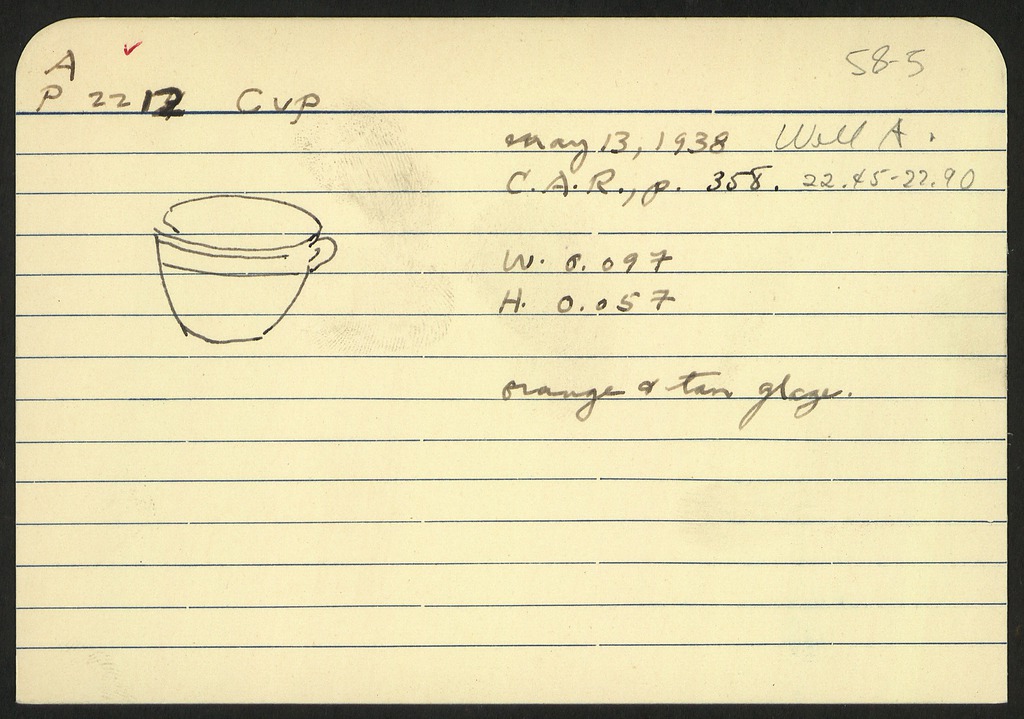 A
58-5
P 2212 Cup
May 13, 1938 Well A.
C.A.R., p. 358. 22.45-22.90
W. 0.097
H. 0.057
orange & tan glaze.